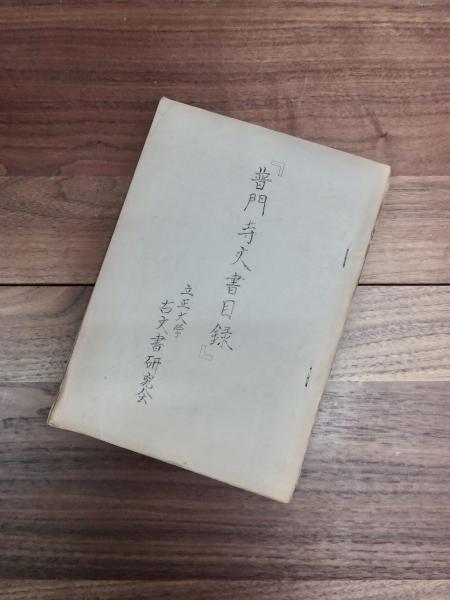 『普門寺文書目録』
立正大学
古文書研究会